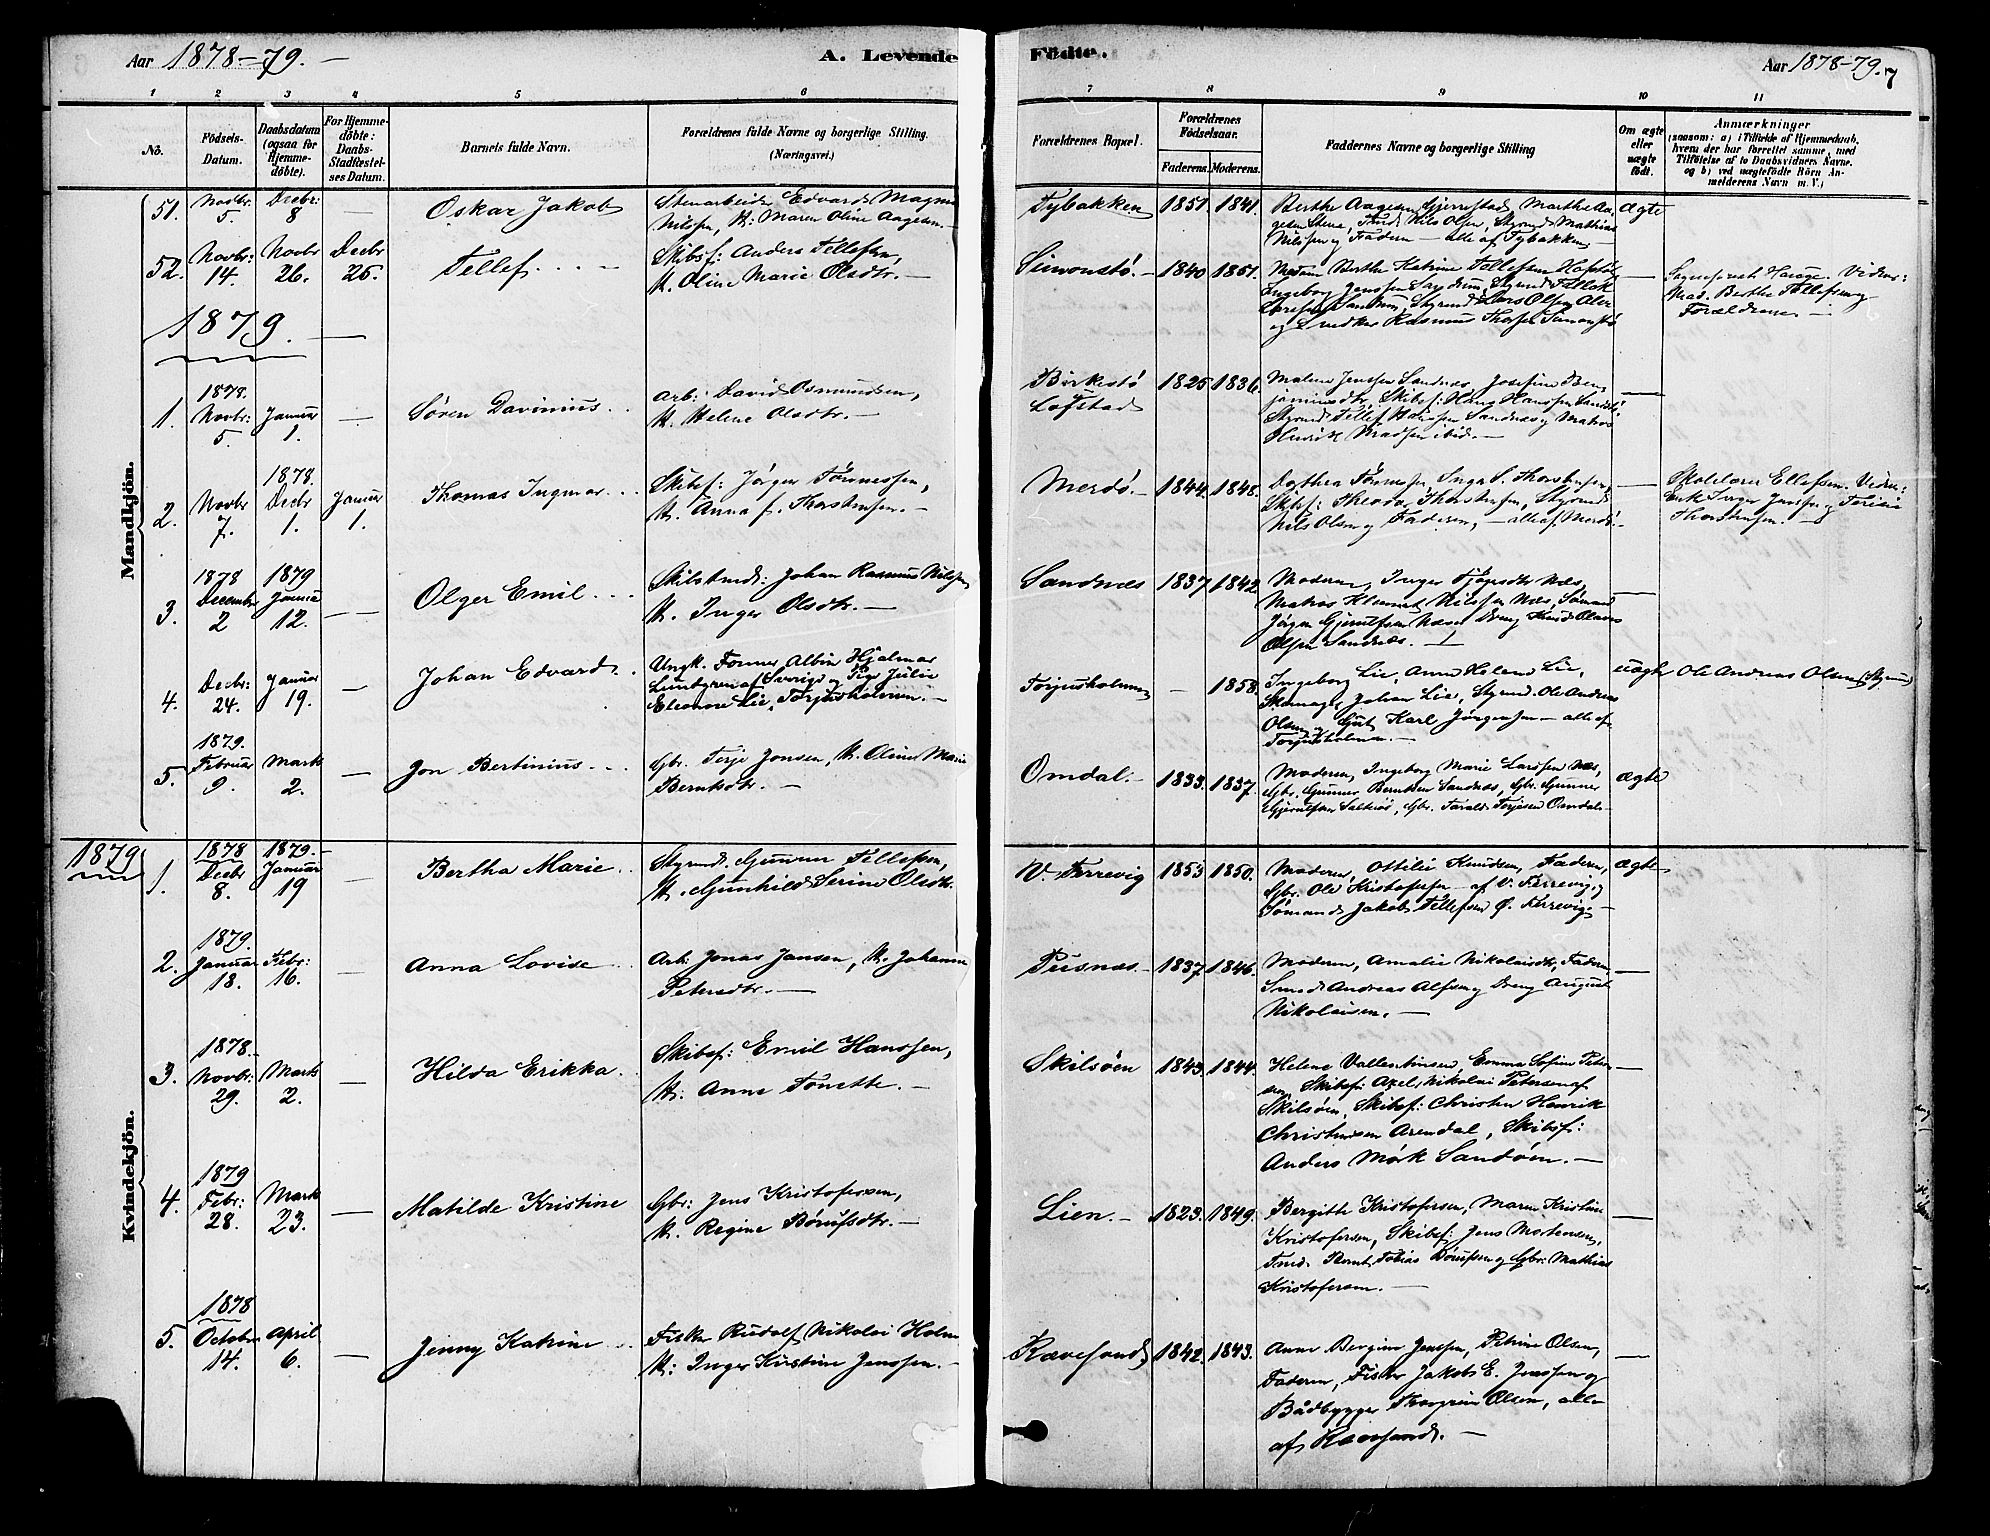 Aar 1878-79. —
A. Levende Födte.
Aar 1878-79. 7
1 2 3 4 5 6 7 8 9 10 11
No.
Födsels-Datum.
Daabsdatum (ogsaa for Hjemmedöbte).
For Hjemmedöbte: Daabs-Stadfæstelses Datum.
Barnets fulde Navn.
Forældrenes fulde Navne og borgerlige Stilling. (Næringsvei.)
Forældrenes Bopæl.
Forældrenes Födselsaar.
Faderens. Moderens.
Faddernes Navne og borgerlige Stilling
Om ægte eller uægte födt.
Anmærkninger
(saasom: a) i Tilfælde af Hjemmedaab, hvem der har forrettet samme, med Tilföielse af to Daabsvidners Navne. og b) ved uægtefödte Börn Anmelderens Navn m. V.)
Mandkjön.
51. Novbr. 5. Decbr: 8 — Oskar Jakob
Stenarbeider Edvard Magnus
Nilssen, H: Maren Oline Aagesen. —
Tybakken 1851. 1841.
Berthe Aagesen Gjerrestad, Marthe Aa-
gesen Stene, Nils Olsen, Styrmd Mathias
Nilssen og Faderen — alle af Tybakken. —
ægte
52. Novbr: 14. Novbr 26. Decbr 26. Tellef. . . . —
Skibsf: Anders Tellefsen,
H. Oline Marie Olsdtr. —
Simonstø. — 1840 1851.
Madam Berthe Katrine Tellefsen
Ingeborg Jenssen Styrmd Tellef
Styrmd Lars Olsen
og Rasmus Simonstø
—
Hauge. Vidner:
Mad. Berthe Tellefsen og
Forældrene —
1879. —
1. 1878. Novbr: 5. Januar 1. — Søren Davinius. .
Arb: David Osmundsen,
H. Helene Olsdtr. —
Birkestø Løfstad 1825 1836.
Malene Jenssen Sandnæs, Josefine Ben-
jaminsdtr, Skibsf: Hans Hanssen
Styrmd Tellef Hanssen Sandnæs og Matros
Henrik Madsen ibid. —
—
2. Novbr 7. 1878. Decbr 1. Januar 1. Thomas Ingmar. . .
Skibsf: Jørgen Tønnessen,
H. Anna f. Thorstensen. —
Merdø. — 1844. 1848.
Dorthea Tønnessen, Inga S. Thorstensen,
Skibsf: Theodor Thorstensen, Styrmd
Nils Olsen og Faderen, — alle af Merdø. —
—
Skolelærer Ellefsen. Vidner:
Enke Inger Jenssen og Terese
Thorstensen. —
3. 1878 December 2 1879 Januar 12. — Olger Emil . . .
Skibstmd: Johan Rasmus Nilssen
H. Inger Olsdtr. —
Sandnæs 1837 1842
Moderen, Inger Næs,
Matros Klemet Nilssen Næs, Sømand
Jørgen Gjerulfsen Næs Dreng Knud Olaves
Olsen Sandnæs. —
—
4. Decbr: 24. Januar 19. — Johan Edvard. .
Ungk. Tømmer Albin Hjalmar
Lundgren af Sverige og Pige Julie
Eleonore Lie, Torjusholmen. —
Torjusholmen — 1858.
Ingeborg Lie, Anne Helene Lie,
Johan Lie, Styrmd. Ole Andreas
Olsen og Karl Jørgensen — alle af
Torjusholmen. —
uægte
Ole Andreas Olsen (Styrmd)
5. 1879. Februar 9. Marts 2. — Jon Bertinius. . .
Gbr. Terje Jonsen, H. Oline Marie
Berntsdtr. —
Omdal. — 1833. 1837.
Moderen, Ingeborg Marie Larssen Næs,
Gbr. Gunner Berntsen Sandnæs, Gbr. Gunner
Gjerulfsen Saltrøs, Gbr. Tarald Terjesen Omdal. —
ægte
1879
Kvindekjön.
1. 1878 Decbr 8. 1879. — Januar 19 — Bertha Marie. .
Styrmd. Gunner Tellefsen,
H. Gunhild Serine Olsdtr.
V. Ferrevig 1853 1850.
Moderen, Ottilie Knudsen, Faderen,
Gbr. Ole Kristofersen — af V. Ferrevig, og
Sømand Jakob Tellefsen Ø. Ferrevig. —
ægte
2. 1879. Januar 18. Febr: 16. — Anna Lovise . .
Arb: Jonas Jansen, H. Johanne
Petersdtr. —
Pusnæs. — 1837 1846.
Moderen, Amalie Nikolaisdtr, Faderen,
Smed Andreas Alfsen og Dreng August
Nikolaisen. —
—
3. 1878. Novbr: 29. Marts 2. — Hilda Erikka. .
Skibsf: Emil Hanssen,
H. Anne Tonette. —
Skilsøen 1843. 1844.
Helene Vallentinsen, Emma Sofine Peter-
sen, Skibsf: Axel Nikolai Petersen af
Skilsøen, Skibsf: Christen Henrik
Christensen Arendal, Skibsf:
Anders Mørk Sandøen. —
—
4. 1879 Febr: 28. Marts 23. — Matilde Kristine
Gbr: Jens Kristofersen,
H. Regine Børufsdtr. —
Lien. — 1823. 1849.
Bergitte Kristofersen, Maren Kristine
Kristofersen, Skibsf: Jens Mortensen,
Tmd. Bernt Tobias Børufsen og Gbr: Mathias
Kristofersen. —
—
5. 1878 October 14. April 6. — Jenny Katrine . .
Fisker Rudolf Nikolai Holm
H: Inger Kirstine Jenssen. —
Rævesand. 1842. 1843.
Anne Bergine Jenssen, Petrine Olsen,
Faderen, Fisker Jakob E. Jenssen og
Bådbygger Thorgrim Olsen, alle
af Rævesand. —
—